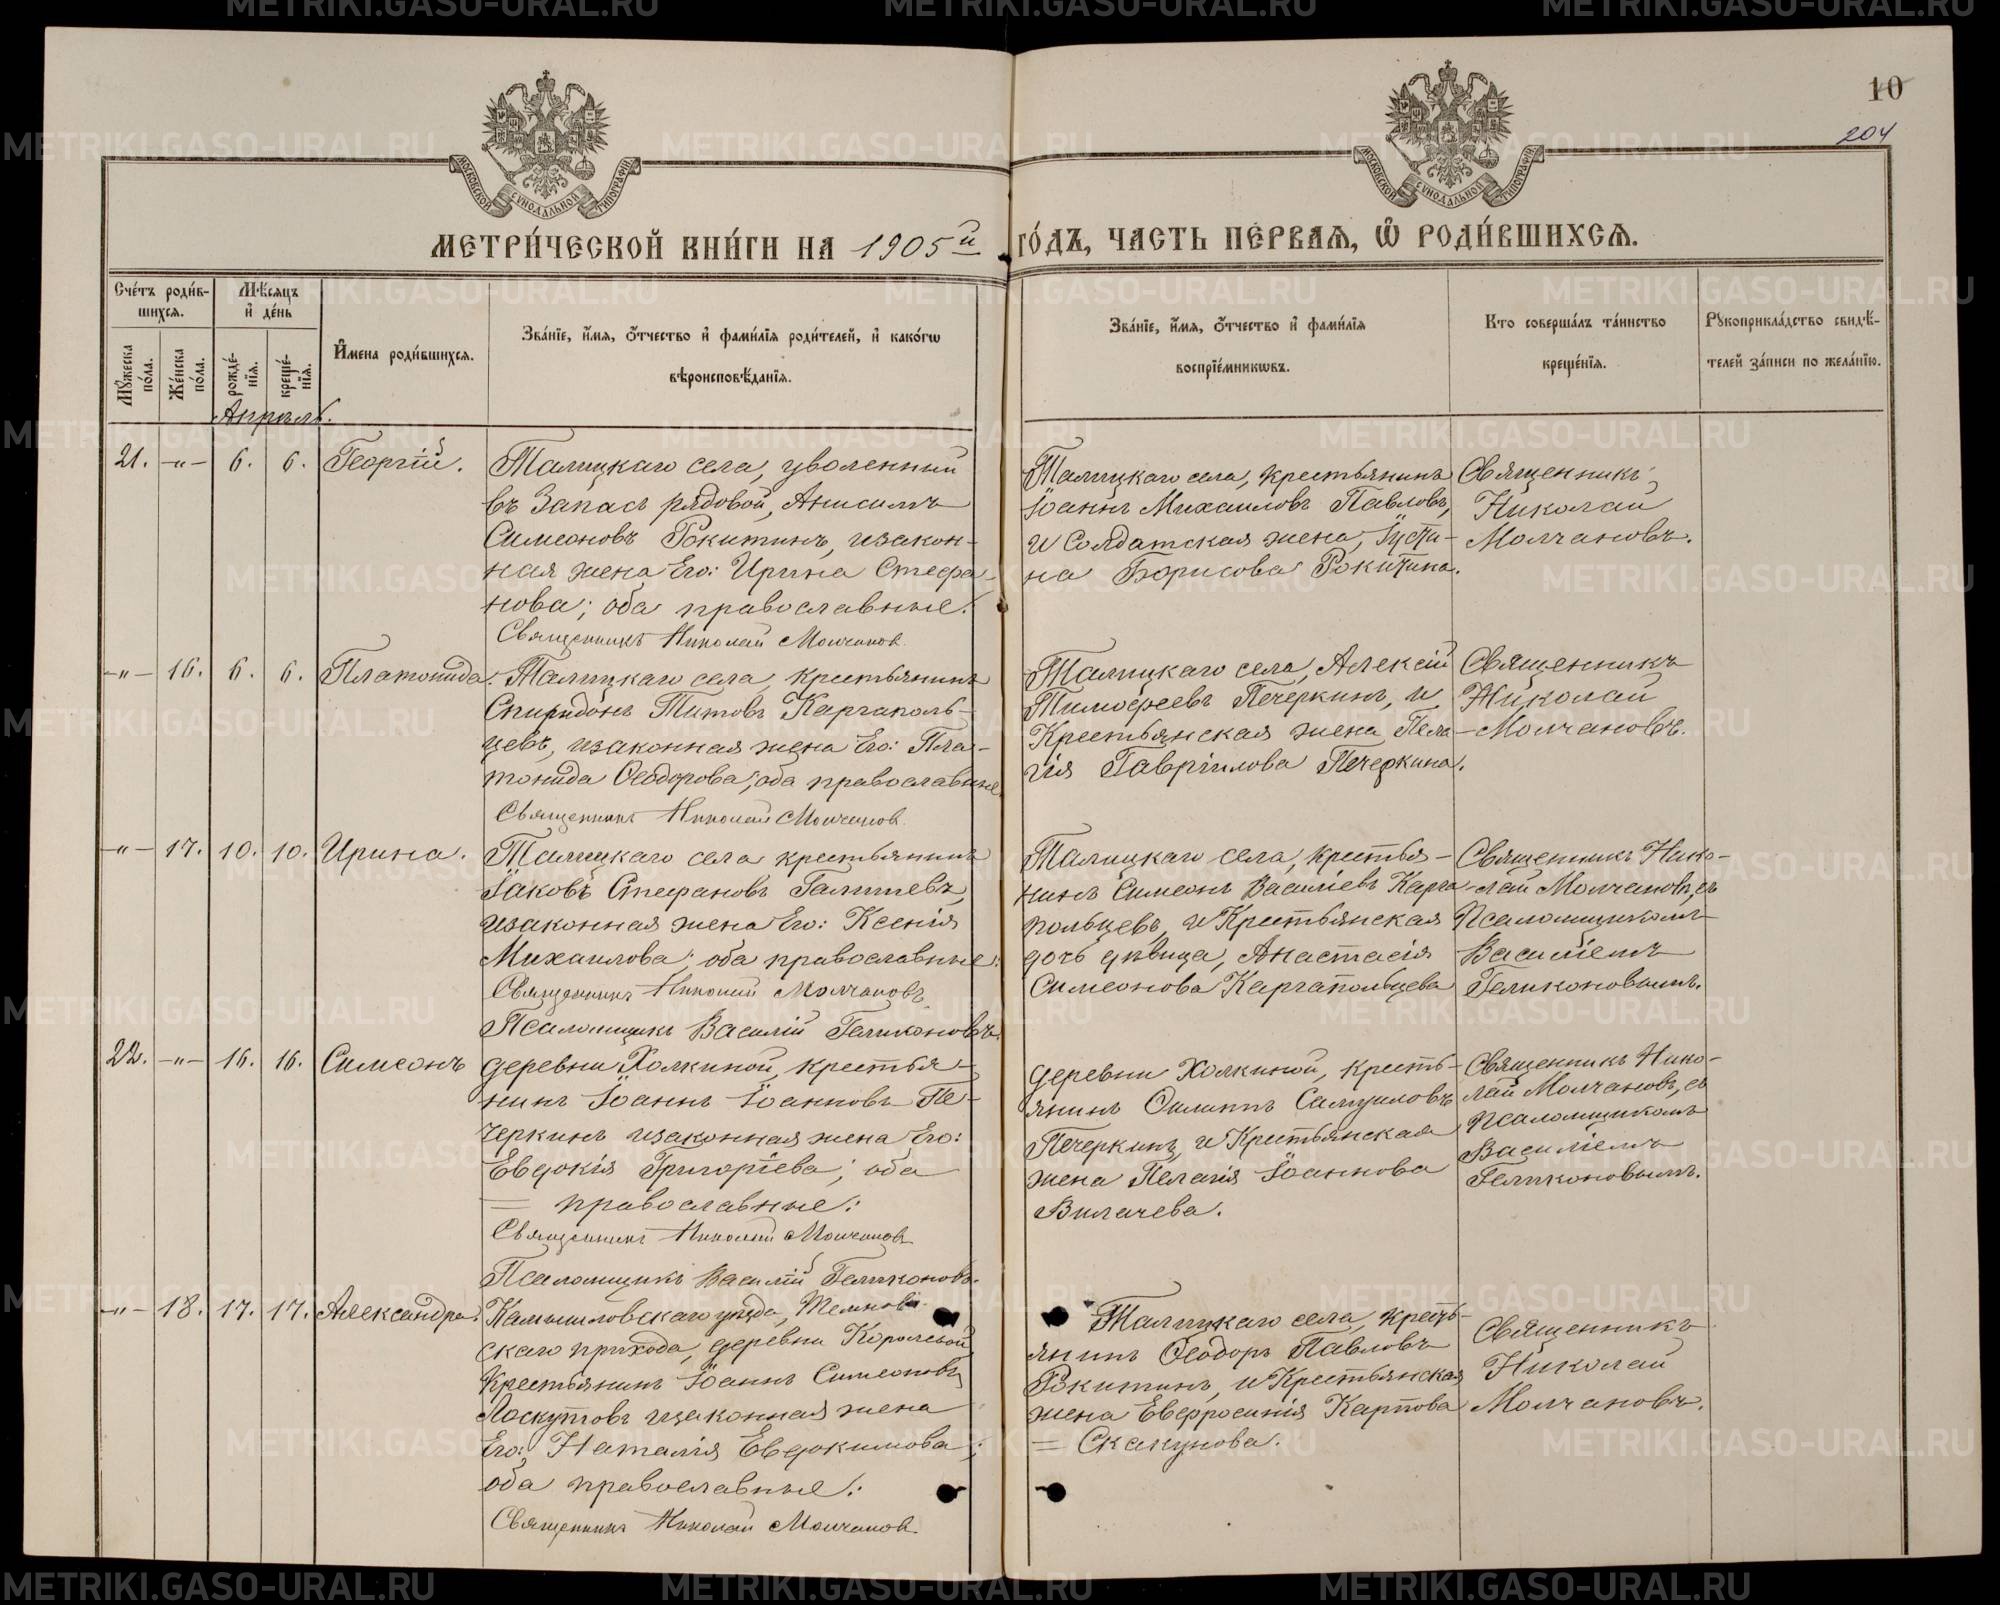 10
204
МОСКОВСКОЙ СѴНОДАЛЬНОЙ ТИПОГРАФІИ
МОСКОВСКОЙ СѴНОДАЛЬНОЙ ТИПОГРАФІИ
МЕТРИ́ЧЕСКОЙ КНИ́ГИ НА 1905й ГО́ДЪ, ЧАСТЬ ПЕ́РВАЯ, Ѡ҆ РОДИ́ВШИХСЯ.
Сче́тъ роди́в-
шихся.
Мѣ́сяцъ
и҆ де́нь
И҆мена роди́вшихся.
Зва́нїе, и҆́мя, ѻ҆́тчество и҆ фами́лїя роди́телей, и҆ како́гѡ
вѣроисповѣ́данїя.
Мꙋ́жеска
по́ла.
Же́нска
по́ла.
рожде́-
нїя.
креще́-
нїя.
Зва́нїе, и҆́мя, ѻ҆́тчество и҆ фами́лїя
воспрїе́мникѡвъ.
Кто соверша́лъ та́инство
креще́нїя.
Рꙋкоприкла́дство свидѣ́-
телей за́писи по жела́нїю.
Апрѣль.
21. -"- 6. 6. Георгій.
Талицкаго села, уволенный
въ Запасъ рядовой, Анисимъ
Симеоновъ Рокитинъ, изакон-
ная жена Его: Ирина Стефа-
нова; оба православные.
Священникъ Николай Молчановъ
Талицкаго села, крестьянинъ
Іоаннъ Михаиловъ Павловъ,
и Солдатская жена, Іусти-
на Борисова Рокитина.
Священникъ
Николай
Молчановъ.
-"- 16. 6. 6. Платонида.
Талицкаго села, крестьянинъ
Спиридонъ Титовъ Каргаполь-
цевъ, изаконная жена Его: Пла-
тонида Ѳеодорова; оба православные
Священникъ Николай Молчановъ
Талицкаго села, Алексій
Тимоѳеевъ Печеркинъ, и
Крестьянская жена Пела-
гія Гавріилова Печеркина.
Священникъ
Николай
Молчановъ.
-"- 17. 10. 10. Ирина.
Талицкаго села крестьянинъ
Іаковъ Стефановъ Галишевъ,
изаконная жена Его: Ксенія
Михаилова; оба православные:
Священникъ Николай Молчановъ
Псаломщикъ Василій Геликоновъ.
Талицкаго села, крестья-
нинъ Симеонъ Василіевъ Карга
польцевъ, и Крестьянская
дочь дѣвица, Анастасія
Симеонова Каргапольцева
Священникъ Нико-
лай Молчановъ, съ
Псаломщикомъ
Василіемъ
Геликоновымъ.
22. -"- 16. 16. Симеонъ
деревни Холкиной, крестья-
нинъ Іоаннъ Іоанновъ Пе-
черкинъ изаконная жена Его:
Евдокія Григоріева; оба
= православные:
Священникъ Николай Молчановъ
Псаломщикъ Василій Геликоновъ.
деревни Холкиной, кресть-
янинъ Филиппъ Самуиловъ
Печеркинъ, и Крестьянская
жена Пелагія Іоаннова
Вилачева.
Священникъ Нико-
лай Молчановъ, съ
Псаломщикомъ
Василіемъ
Геликоновымъ.
-"- 18. 17. 17. Александра.
Камышловскаго уѣзда,
скаго прихода, деревни Королевой
Крестьянинъ Іоаннъ Симеоновъ
Лоскутовъ изаконная жена
Его: Наталія Евдокимова;
оба православные:
Священникъ Николай Молчановъ
Талицкаго села, кресть-
янинъ Ѳеодоръ Павловъ
Рокитинъ, и Крестьянская
жена Евфросинія Карпова
= Скакунова.
Священникъ
Николай
Молчановъ.
METRIKI.GASO-URAL.RU